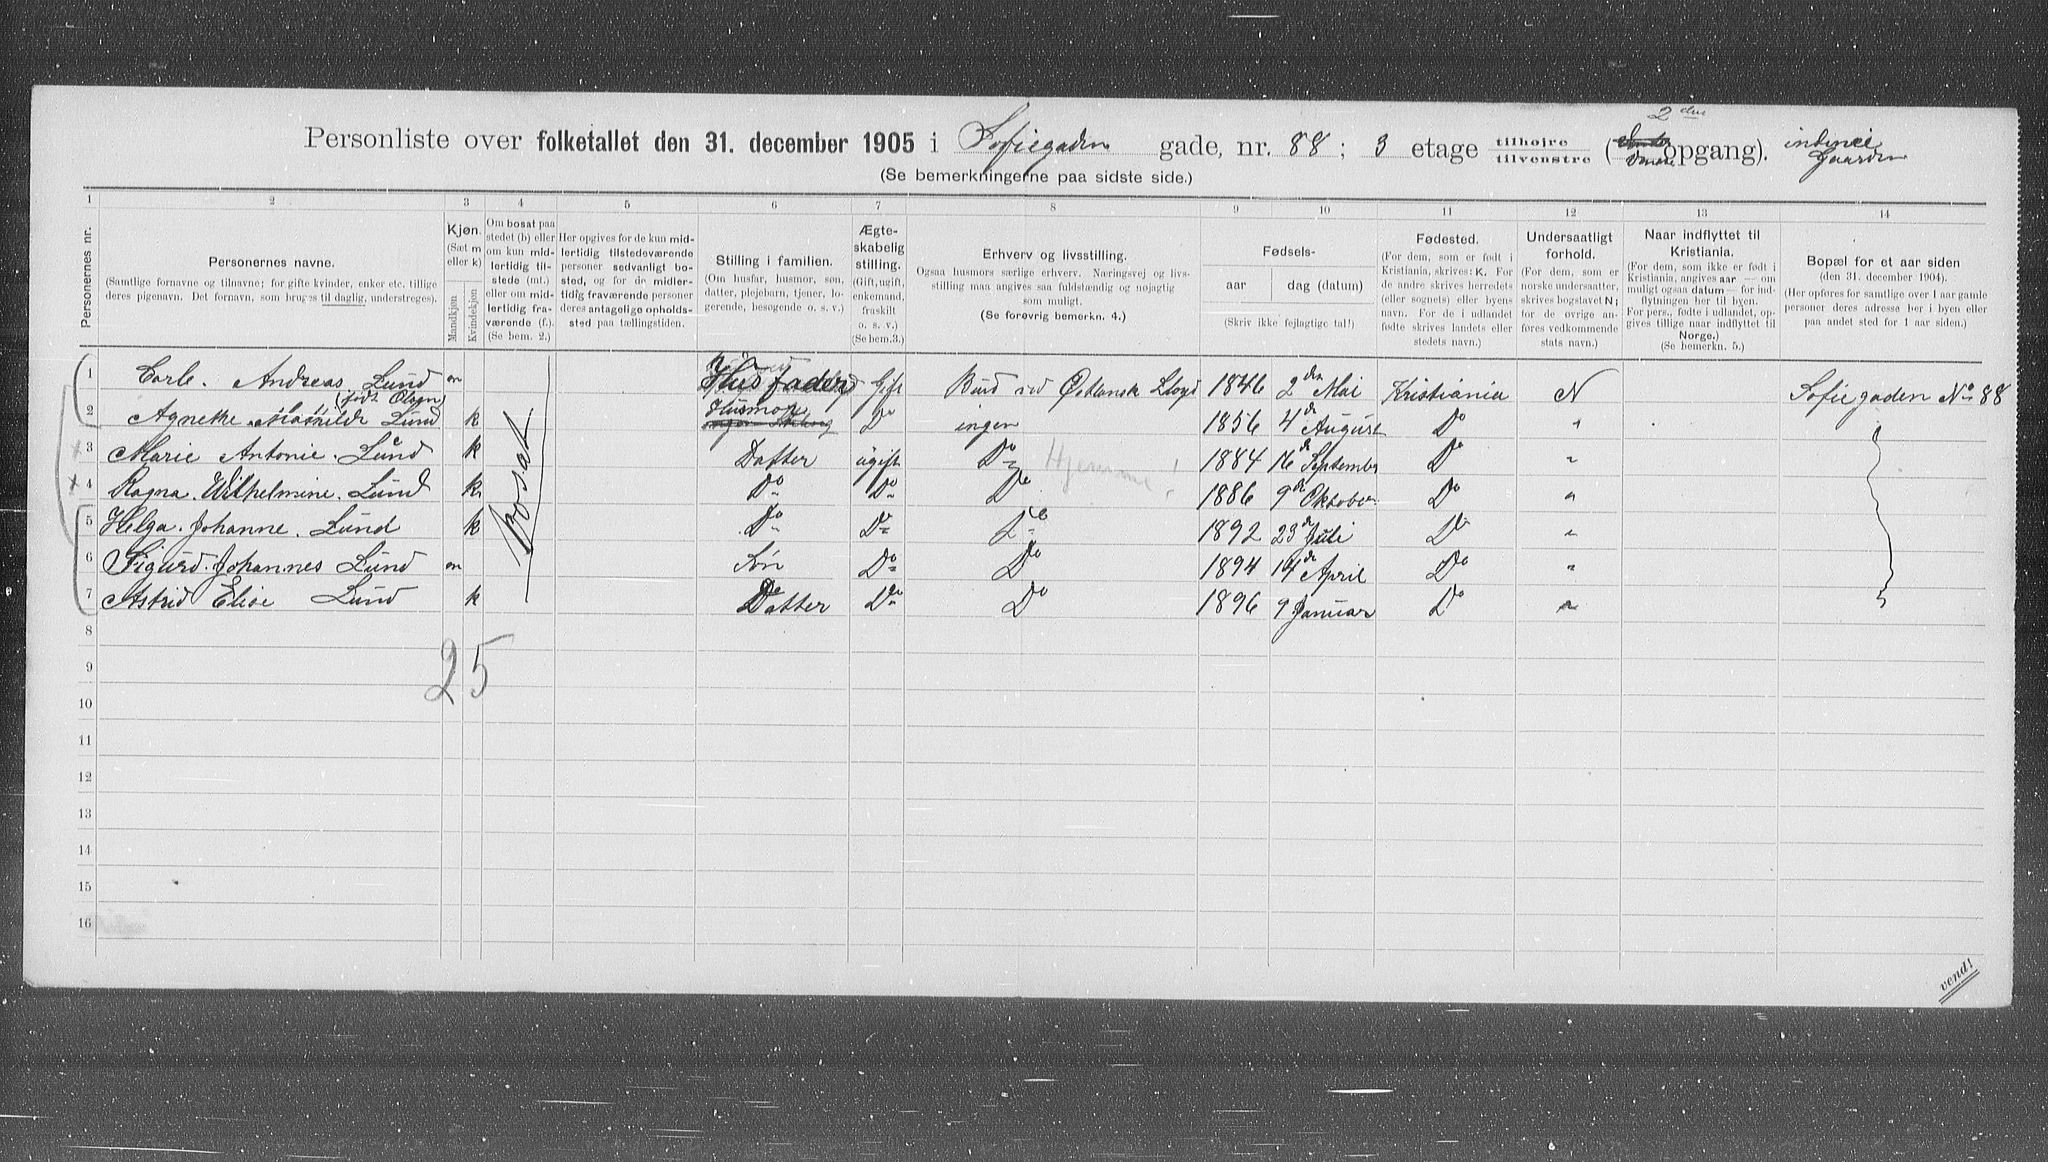 2 den
Personliste over folketallet den 31. december 1905 i Sofiegaden gade, nr. 88; 3 etage tilhøjre tilvenstre ( opgang). Gaarden
(Se bemerkningerne paa sidste side.)
1 2 3 4 5 6 7 8 9 10 11 12 13 14
Personernes nr.
Personernes navne.
(Samtlige fornavne og tilnavne; for gifte kvinder, enker etc. tillige
deres pigenavn. Det fornavn, som bruges til daglig, understreges).
Kjøn.
(Sæt m
eller k)
Mandkjøn
Kvindekjøn
Om bosat paa
stedet (b) eller
om kun mid-
lertidig til-
stede (mt.)
eller om mid-
lertidig fra-
værende (f.).
(Se bem. 2.)
Her opgives for de kun mid-
lertidig tilstedeværende
personer sedvanligt bo-
sted, og for de midler-
tidig fraværende personer
deres antagelige opholds-
sted paa tællingstiden.
Stilling i familien.
(Om husfar, husmor, søn,
datter, plejebarn, tjener, lo-
gerende, besøgende o. s. v.)
Ægte-
skabelig
stilling.
(Gift, ugift,
enkemand,
fraskilt
o. s. v.)
(Se bem.3.)
Erhverv og livsstilling.
Ogsaa husmors særlige erhverv. Næringsvej og livs-
stilling maa angives saa fuldstændig og nøjagtig
som muligt.
(Se forøvrig bemerkn. 4.)
Fødsels-
aar dag (datum)
(Skriv ikke fejlagtige tal!)
Fødested.
(For dem, som er født i
Kristiania, skrives: K. For
de andre skrives herredets
(eller sognets) eller byens
navn. For de i udlandet
fødte skrives landets eller
stedets navn.)
Undersaatligt
forhold.
(For dem, som er
norske undersaatter,
skrives bogstavet N;
for de øvrige an-
føres vedkommende
stats navn.)
Naar indflyttet til
Kristiania.
(For dem, som ikke er født i
Kristiania, angives aar — om
muligt ogsaa datum — for ind-
flytningen her til byen.
For pers., fødte i udlandet, op-
gives tillige naar indflyttet til
Norge.)
(Se bemerkn. 5.)
Bopæl for et aar siden
(den 31. december 1904).
(Her opføres for samtlige over 1 aar gamle
personer deres adresse her i byen eller
paa andet sted for 1 aar siden.)
1 Carl. Andreas Lund m Husfader Gift Bud ved Østlansk Lloyd 1846 2 den Mai Kristiania N Sofiegaden No 88
(født Olsen)
2 Agnethe Mathilde Lund k Husmor Do ingen 1856 4 de August Do "
3 Marie Antonie. Lund k Datter ugift Do Hjemme! 1884 16 de September Do "
4 Ragna. Wilhelmine. Lund k Do Do Do 1886 9 de Oktober Do "
Bosat
5 Helga. Johanne. Lund k Do Do Do 1892 23 de Juli Do "
6 Sigurd. Johannes Lund m Søn Do Do 1894 14 de April Do "
7 Astrid Elise Lund k Datter Do Do 1896 9 Januar Do "
8
25
9
10
11
12
13
14
15
16
vend!